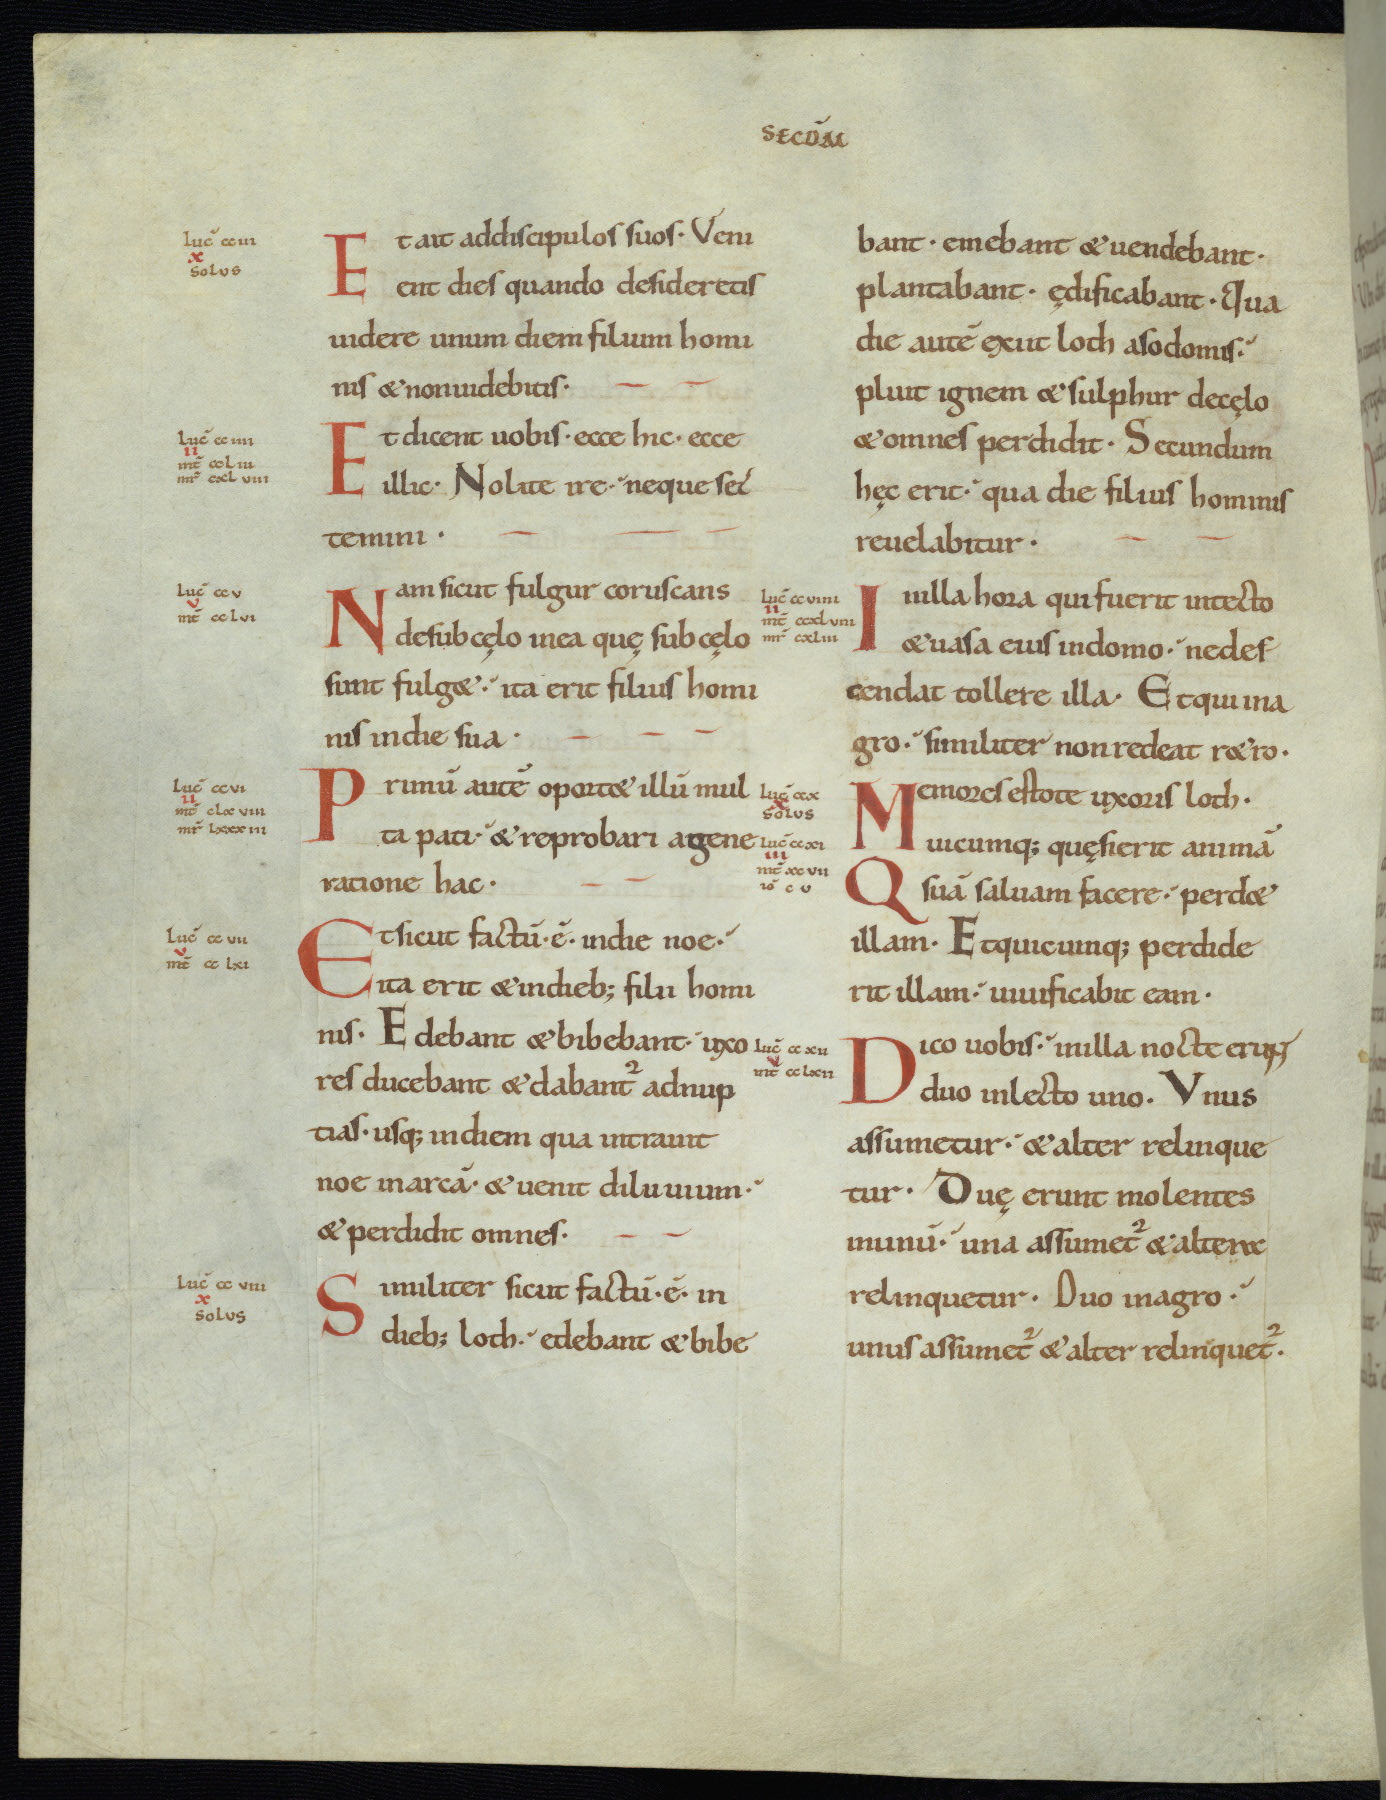 SECŪM
Luc̄ cciii
x
solus
Et ait addiscipulos suos· Veni
ent dies quando desideretis
uidere unum diem filium homi
nis & nonuidebitis·
Luc̄ cciiii
ii
mt̄ ccliii
mr̄ cxlviii
Et dicent uobis· ecce hic· ecce
illic· Nolite ire· neque sec
temini·
Luc̄ ccv
v
mt̄ cclvi
Nam sicut fulgur coruscans
desubcęlo inea quę subcęlo
sunt fulg&· ita erit filius homi
nis indie sua·
Luc̄ ccvi
ii
mt̄ clxviii
mr̄ lxxxiii
Primū autē oport& illū mul
ta pati· & reprobari agene
ratione hac·
Luc̄ ccvii
v
mt̄ cclxi
Et sicut factū·ē· indie noe·
ita erit & indieb; filii homi
nis· Edebant & bibebant· uxo
res ducebant & dabant᷑ adnup
tias· usq; indiem qua intrauit
noe inarcā· & uenit diluuium·
& perdidit omnes·
Luc̄ ccviii
x
solus
Similiter sicut factū·ē· in
dieb; loth· edebant & bibe
bant· emebant & uendebant·
plantabant· ędificabant· Qua
die autē exiit loth asodomis·
pluit ignem & sulphur decęlo
& omnes perdidit· Secundum
hęc erit· qua die filius hominis
reuelabitur·
Luc̄ ccviiii
ii
mt̄ ccxlviii
mr̄ cxliii
Inilla hora qui fuerit intecto
& uasa eius indomo· nedes
cendat tollere illa· Et qui ina
gro· similiter nonredeat r&ro·
Luc̄ ccx
x
solus
Memores estote uxoris loth·
Luc̄ ccxi
iii
mt̄ xcvii
iō cv
Quicumq; quęsierit animā
suā saluam facere· perd&
illam· Et quicumq; perdide
rit illam· uiuificabit eam·
Luc̄ ccxii
v
mt̄ cclxii
Dico uobis· inilla nocte erunt
duo inlecto uno· Vnus
assumetur· & alter relinque
tur· Duę erunt molentes
inunū· una assumet᷑ & altera
relinquetur· Duo inagro·
unus assumet᷑ & alter relinquet᷑·